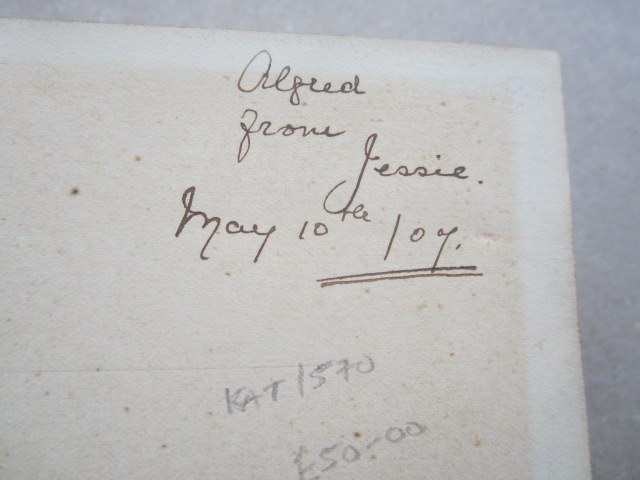 Alfred
from
Jessie.
May 10th /07.
KAT 1570
£50-00